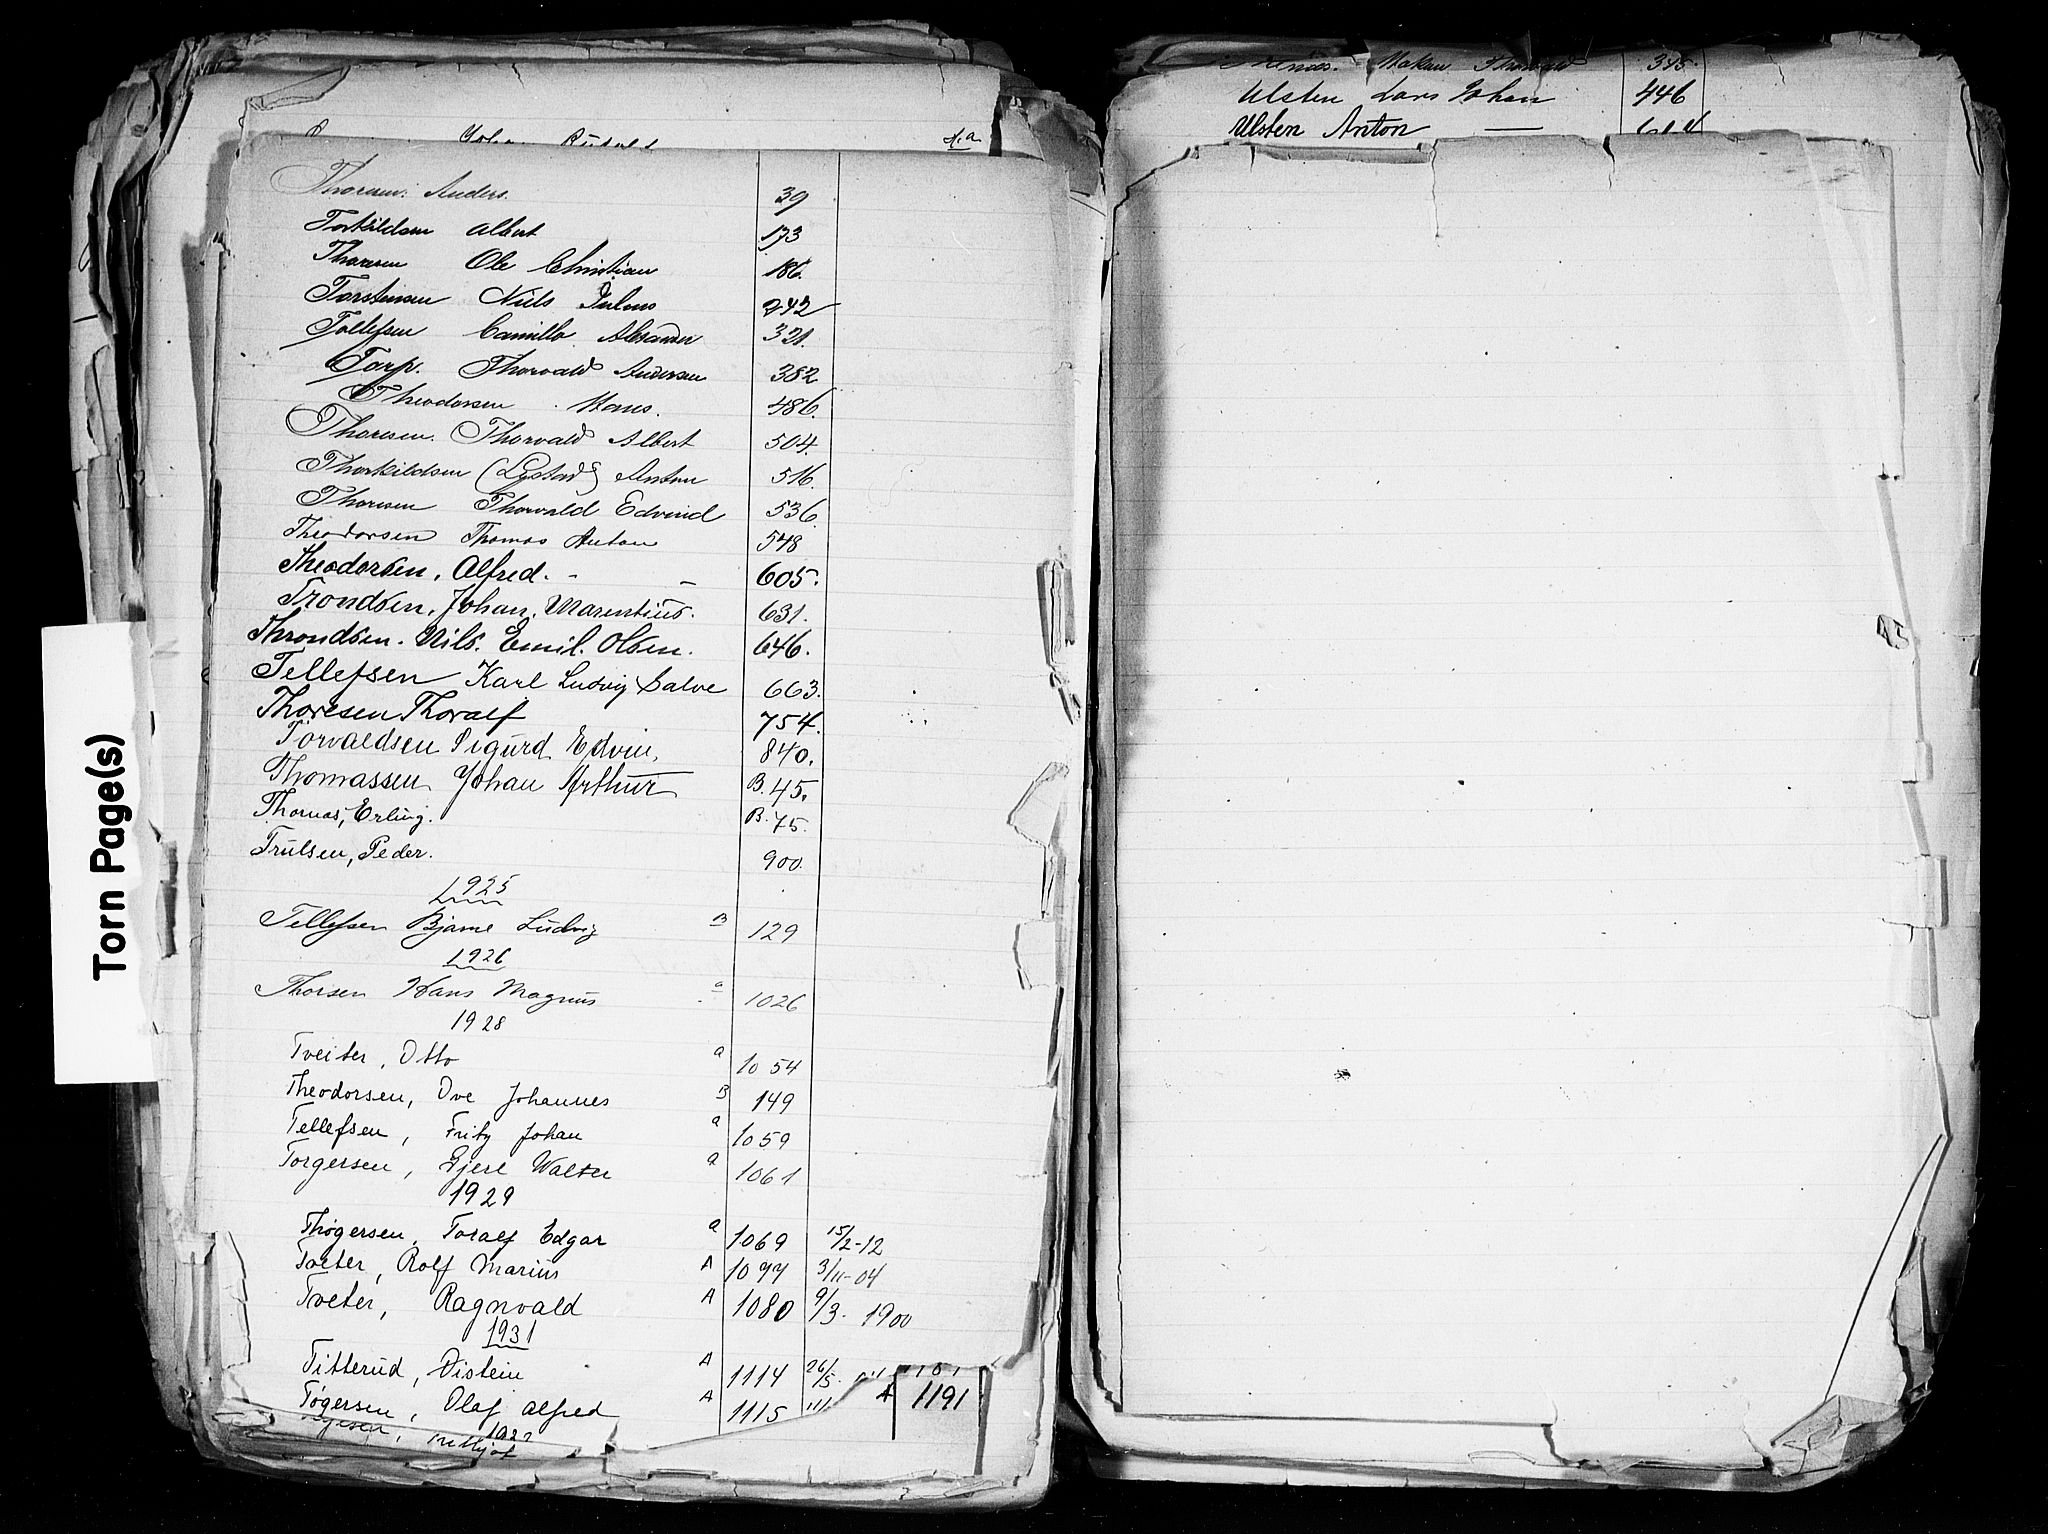 Torn Page(s)
Johan Rudolf
Thoresen. Anders. 39
Torkildsen Albert 173
Thoresen Ole Christian 186.
Torstensen Niels Julius 242
Tollefsen Camillo Alexander 321.
Torp. Thorvald Andersen 382
Theodorsen Hans. 486.
Thoresen. Thorvald Albert 504.
Thorkildsen (Lystad) Anton 516.
Thoresen Thorvald Edvind 536.
Theodorsen Thomas Anton 548
Theodorsen, Alfred. - - 605.
Trondsen, Johan, Marentius. 631.
Throndsen. Nils. Emil. Olsen. 646.
Tellefsen Karl Ludvig Salve 663.
Thoresen Thoralf 754.
Torvaldsen Sigurd Edvin. 840.
Thomassen Johan Arthur B. 45.
Thomas, Erling. B. 75.
Trulsen, Peder. 900.
1925
Tellefsen Bjarne Ludvig B 129
1926
Thorsen Hans Magnus a 1026
1928
Tveiter, Otto a 1054
Theodorsen, Ove Johannes B 149
Tellefsen, Fritz Johan a 1059
Torgersen, Gjert Walter a 1061
1929
Thøgersen, Toralf Edgar a 1069 15/2-12
Tveter, Rolf Marius A 1077 3/11-04
Tveter, Ragnvald A 1080 9/3. 1900
1931
Titterud, Øistein A 1114 26/5.
Tøgersen, Olaf Alfred A 1115
A 1191
Hakon Thorvald 345.
Ulsten Lars Johan 446
Ulsten Anton —